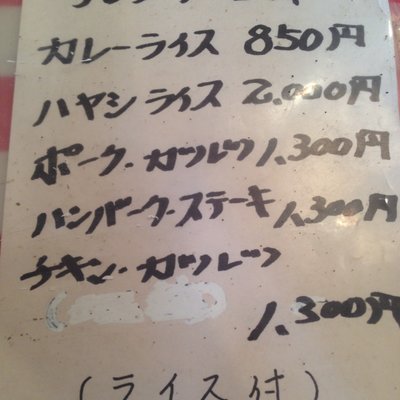 カレーライス 850円
ハヤシライス 2,000円
ポーク・カツレツ 1,300円
ハンバーク・ステーキ 1,300円
チキン・カツレツ
1,300円
(ライス付)